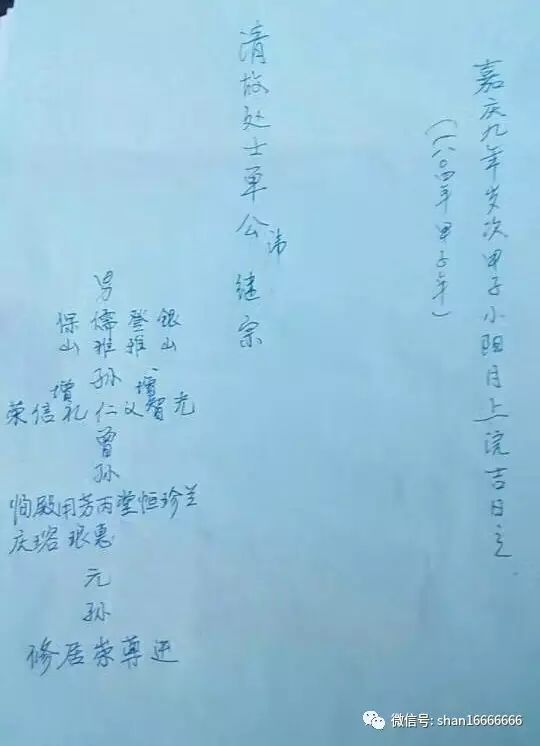 嘉庆九年岁次甲子小阳月上浣吉日立
（一八〇四年甲子年）
清故处士单公讳继宗
男
保 儒 登 银
山 雅 雅 山
孙
增 增
荣信礼仁义智光
曾
孙
殿用芳丙堂恒珍兰
庆瑢琅惠
元
孙
修居荣尊
微信号: shan16666666